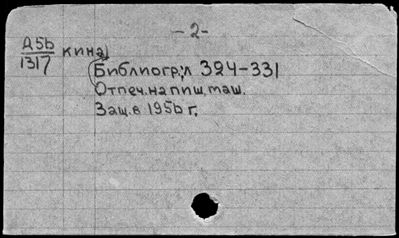 -2-
Д56
1317
кина)
Библиогр.: л 324-331
Отпеч. на пиш. маш.
Защ. в 1956 г.